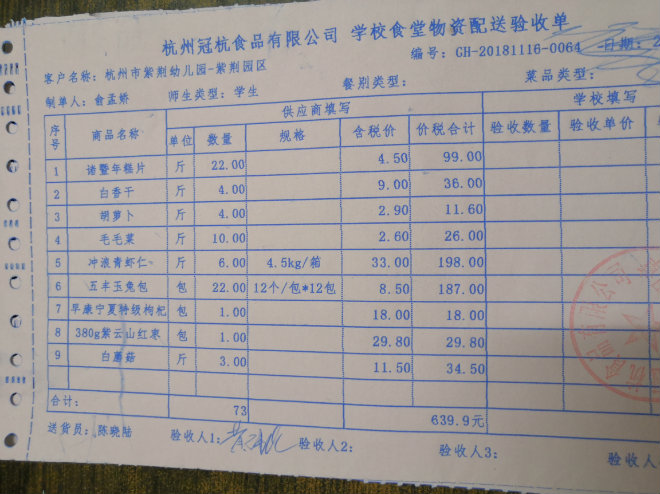 杭州冠杭食品有限公司 学校食堂物资配送验收单
编号: GH-20181116-0064 日期: 2
客户名称: 杭州市紫荆幼儿园-紫荆园区 餐别类型: 菜品类型:
制单人: 俞孟娇 师生类型: 学生
序号 商品名称 供应商填写 学校填写
单位 数量 规格 含税价 价税合计 验收数量 验收单价
1 诸暨年糕片 斤 22.00 4.50 99.00
2 白香干 斤 4.00 9.00 36.00
3 胡萝卜 斤 4.00 2.90 11.60
4 毛毛菜 斤 10.00 2.60 26.00
5 冲浪青虾仁 斤 6.00 4.5kg/箱 33.00 198.00
6 五丰玉兔包 包 22.00 12个/包*12包 8.50 187.00
7 早康宁夏特级枸杞 包 1.00 18.00 18.00
8 380g紫云山红枣 包 1.00 29.80 29.80
9 白蘑菇 斤 3.00 11.50 34.50
合计: 73 639.9元
送货员: 陈晓陆 验收人1: 验收人2: 验收人3: